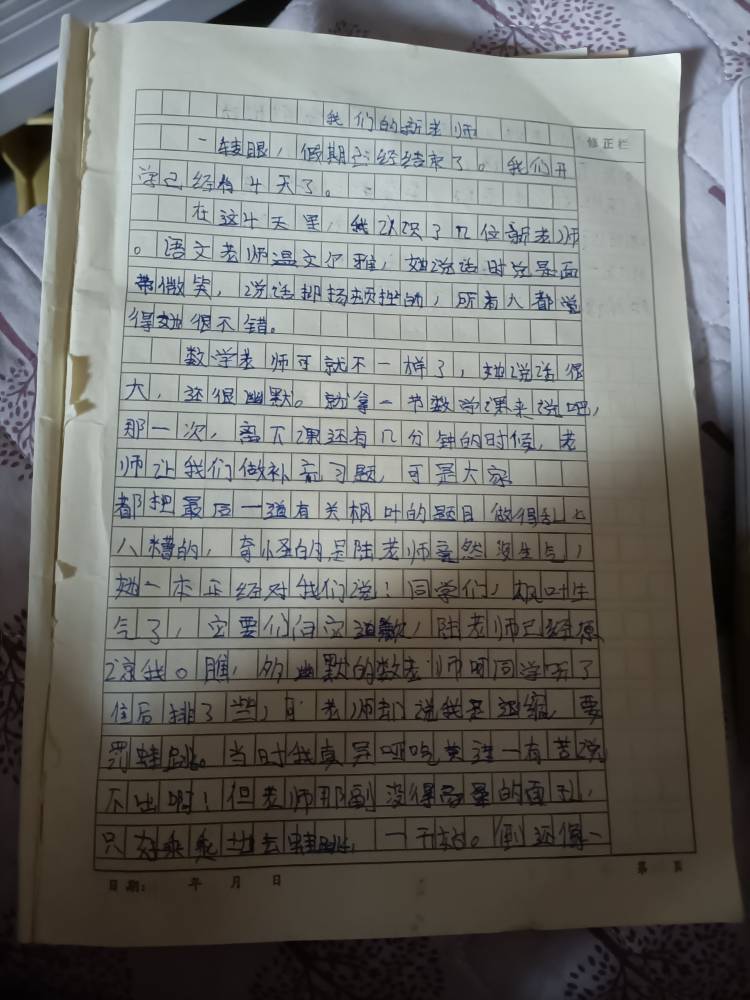 我们的新老师
修正栏
一转眼，假期已经结束了。我们开
学已经有4天了。
在这4天里，我认识了几位新老师
。语文老师温文尔雅，她说话时总是面
带微笑，说话抑扬顿挫的，所有人都觉
得她很不错。
数学老师可就不一样了，她说话很
大，还很幽默。就拿一节数学课来说吧，
那一次，离下课还有几分钟的时候，老
师让我们做补充习题，可是大家
都把最后一道有关枫叶的题目做得乱七
八糟的，奇怪的是陆老师竟然没生气，
她一本正经对我们说：同学们，枫叶生
气了，它要你们向它道歉，陆老师已经原
谅我。瞧，多幽默的数老师呵同学听了
往后排了些，老师却说我是退缩，要
罚蛙跳。当时我真是哑吃黄连一有苦说
不出啊！但老师那副没得商量的面孔，
只好乖乖地去蛙跳，一开始。倒还像一
第 页
日期： 年 月 日